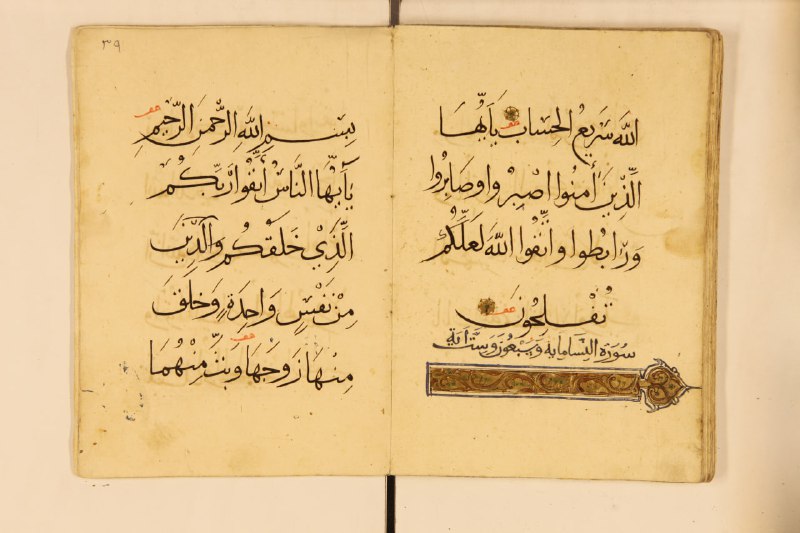 اللّٰهَ سَرِيعُ الْحِسَابِ يَآ اَيُّهَا
الَّذِينَ اٰمَنُوا اصْبِرُوا وَصَابِرُوا
وَرَابِطُوا وَاتَّقُوا اللّٰهَ لَعَلَّكُمْ
تُفْلِحُونَ
سورة النسا ماية وسبعون وست اية
٣٩
بِسْمِ اللّٰهِ الرَّحْمٰنِ الرَّحِيمِ
يَآ اَيُّهَا النَّاسُ اتَّقُوا رَبَّكُمُ
الَّذِي خَلَقَكُمْ وَالَّذِينَ
مِنْ نَفْسٍ وَاحِدَةٍ وَخَلَقَ
مِنْهَا زَوْجَهَا وَبَثَّ مِنْهُمَا